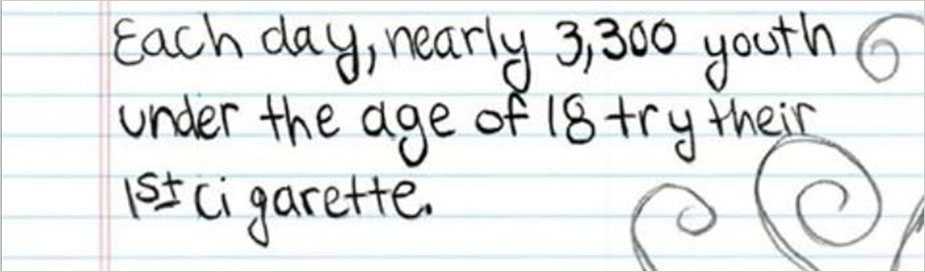 Each day, nearly 3,300 youth
under the age of 18 try their
1st cigarette.